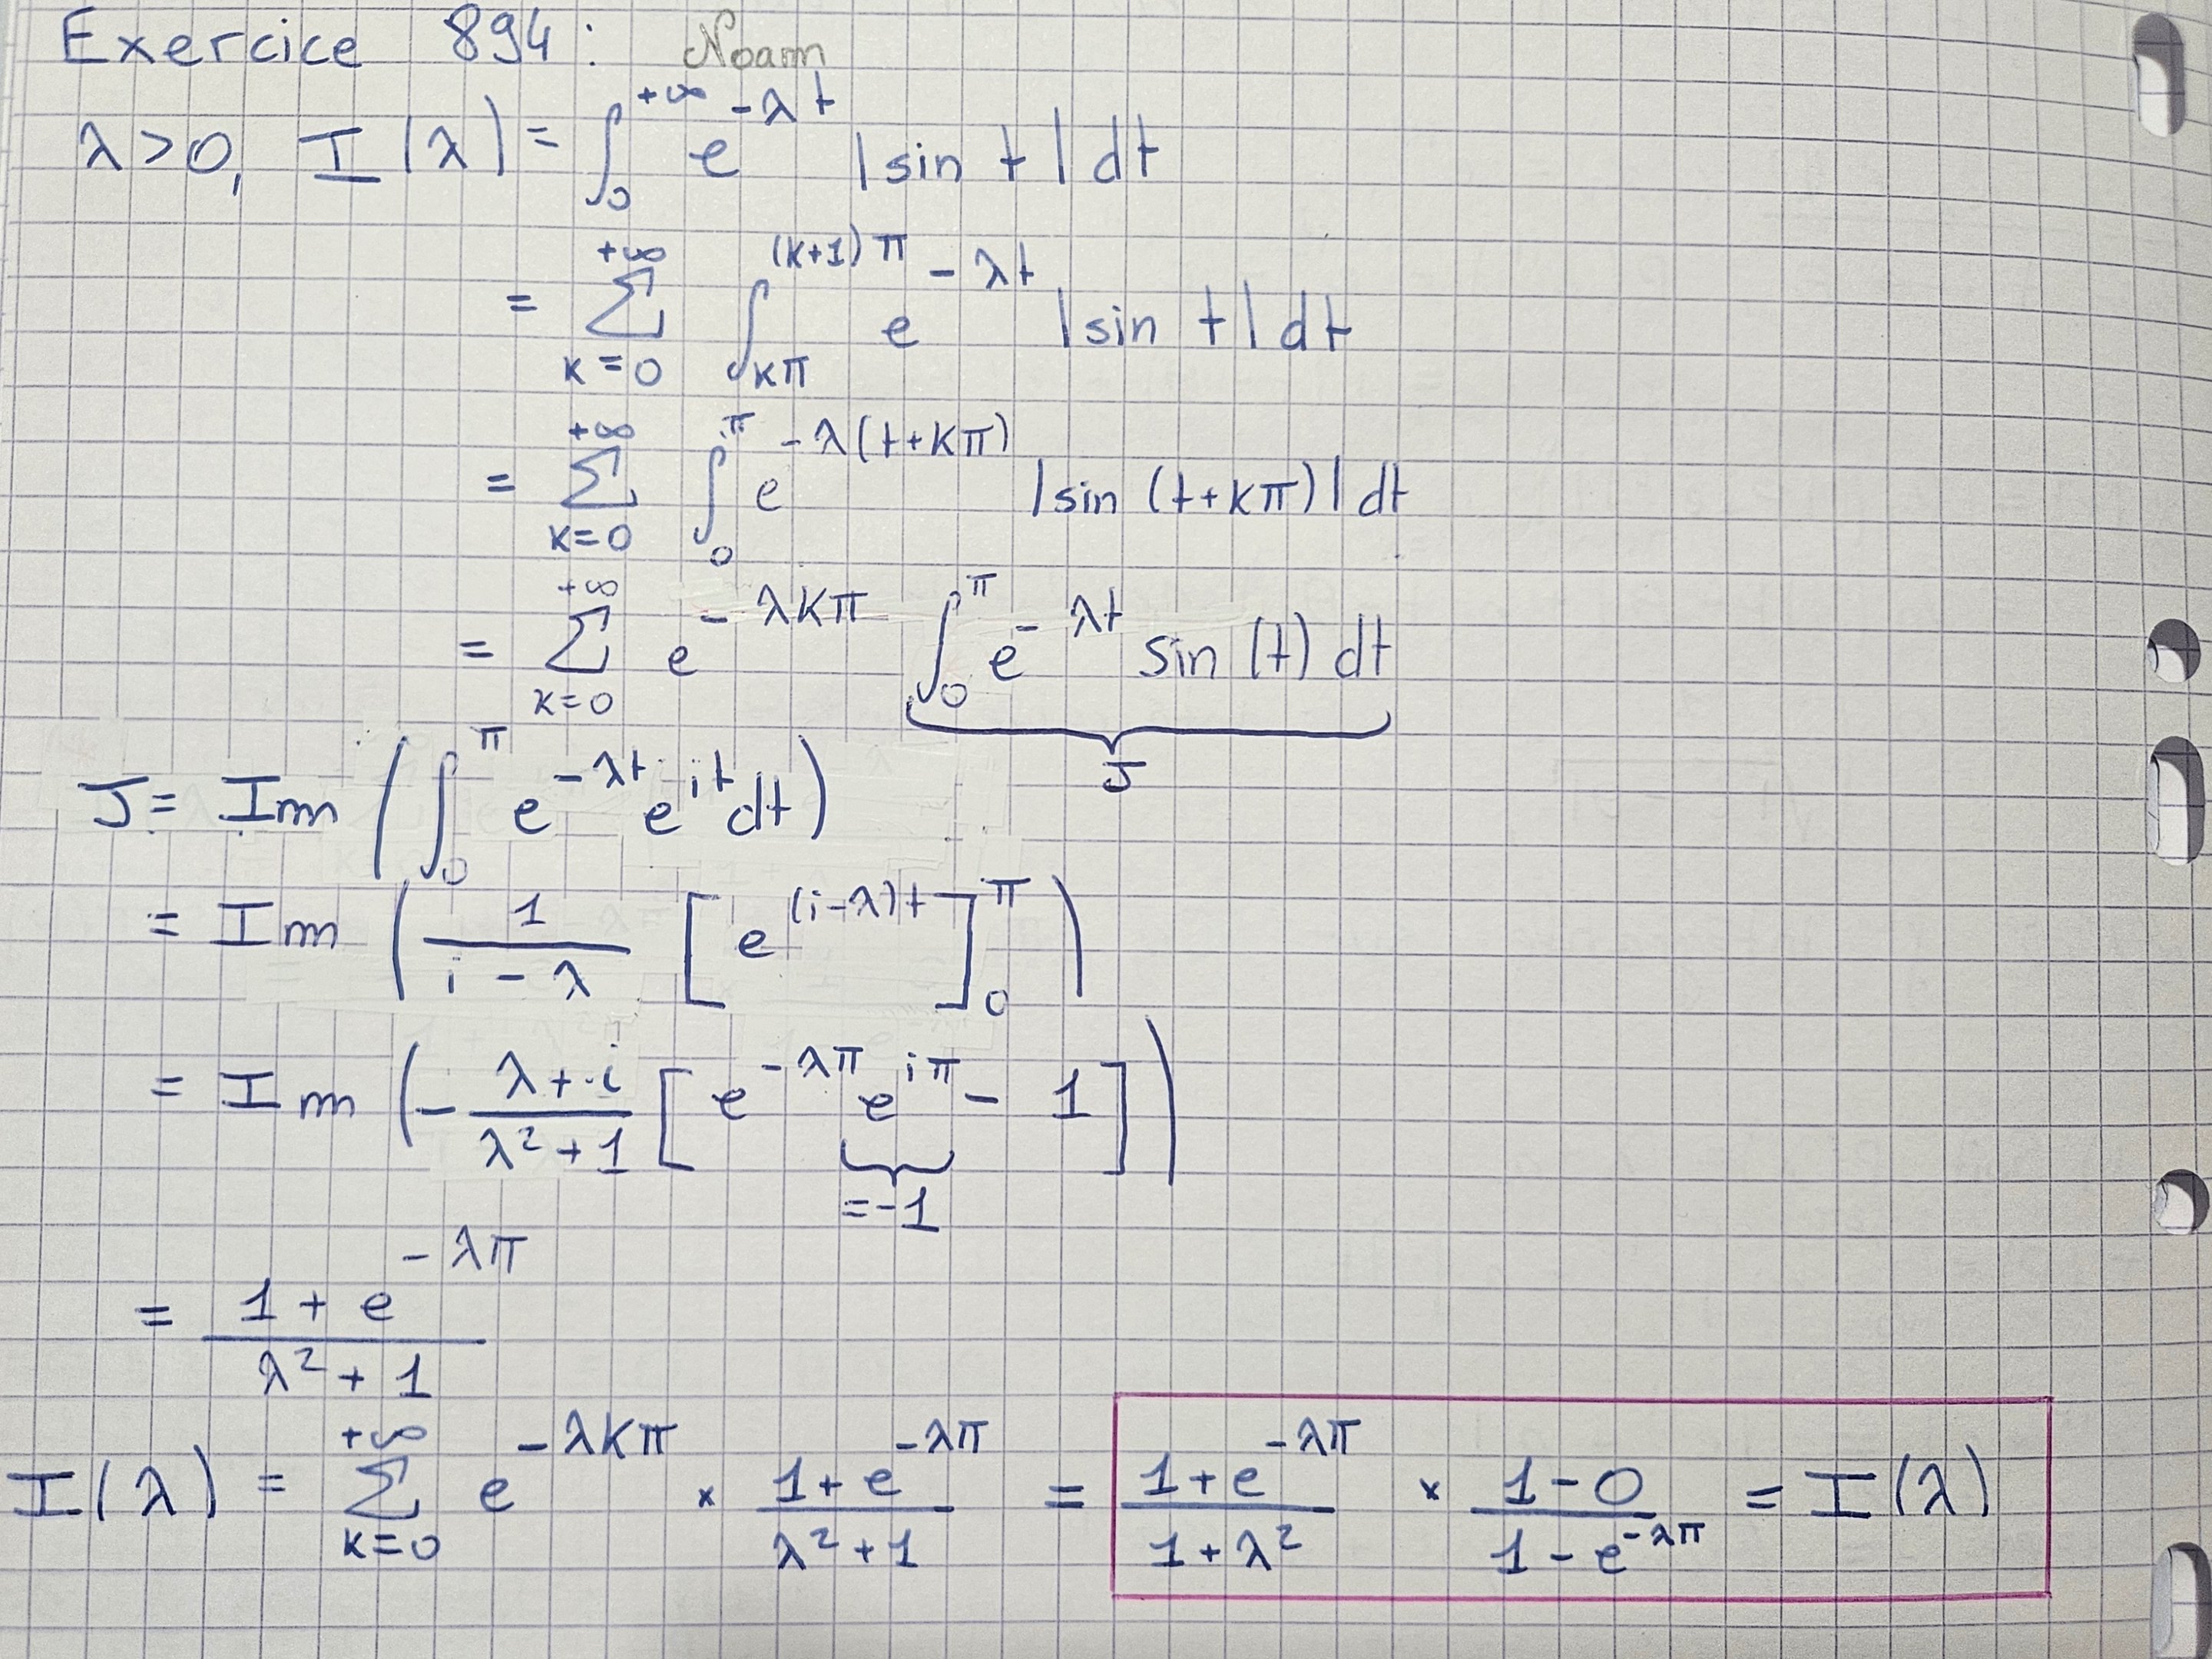 Exercice 894 : Noam
λ>0, I(λ) = ∫_0^{+∞} e^{-λt} |sin t| dt
= ∑_{k=0}^{+∞} ∫_{kπ}^{(k+1)π} e^{-λt} |sin t| dt
= ∑_{k=0}^{+∞} ∫_0^π e^{-λ(t+kπ)} |sin (t+kπ)| dt
= ∑_{k=0}^{+∞} e^{-λkπ} ∫_0^π e^{-λt} sin (t) dt
J
J = Im (∫_0^π e^{-λt} e^{it} dt)
= Im (1/(i-λ) [e^{(i-λ)t}]_0^π)
= Im (- (λ+i)/(λ²+1) [e^{-λπ} e^{iπ} - 1])
=-1
= (1+e^{-λπ})/(λ²+1)
I(λ) = ∑_{k=0}^{+∞} e^{-λkπ} × (1+e^{-λπ})/(λ²+1) = (1+e^{-λπ})/(1+λ²) × (1-0)/(1-e^{-λπ}) = I(λ)